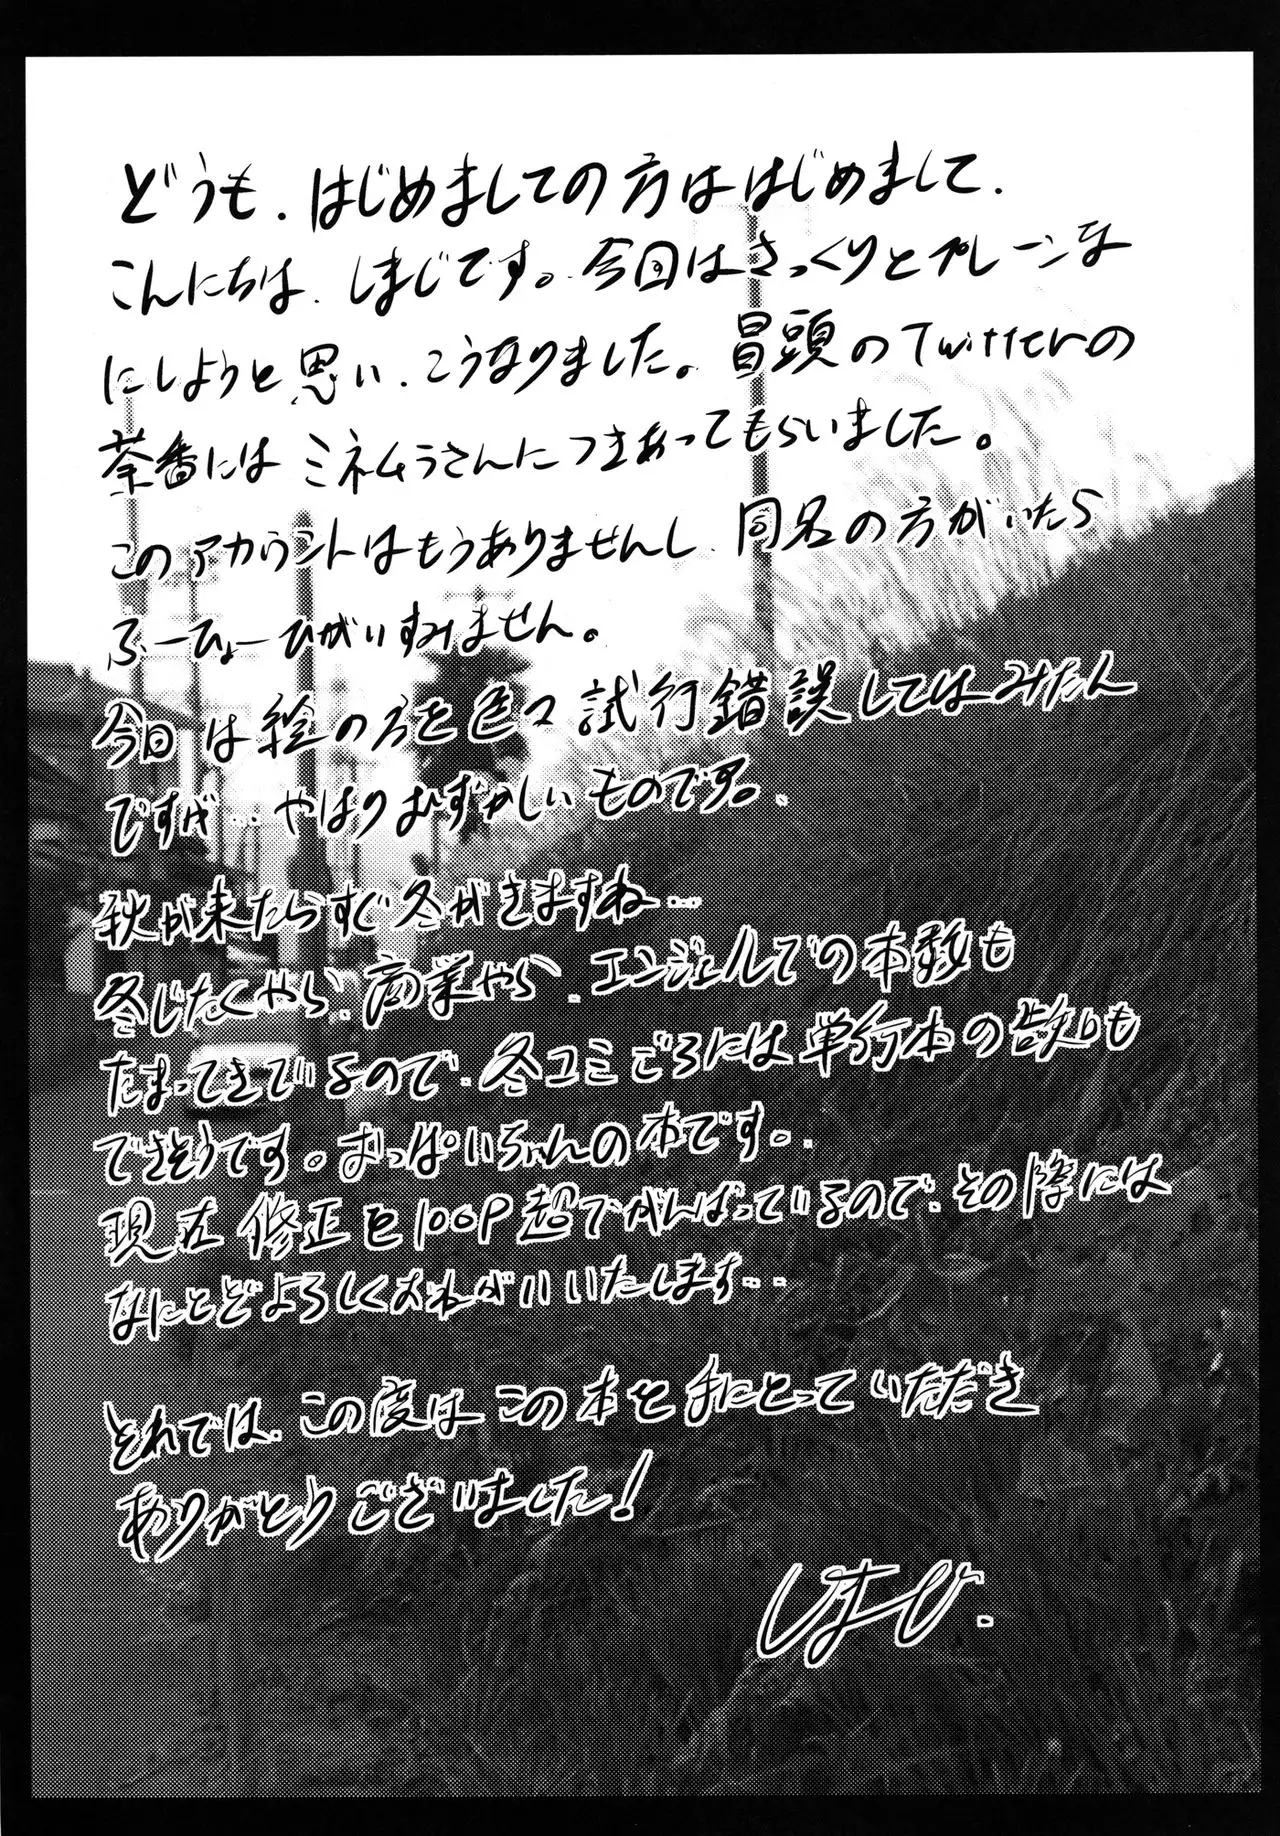 どうも、はじめましての方ははじめまして、
こんにちは、しまじです。今回はさっくりとプレーンな
にしようと思い、こうなりました。冒頭のTwitterの
茶番にはミネムラさんにつきあってもらいました。
このアカウントはもうありませんし、同名の方がいたら
ふーひょーひがいすみません。
今回は絵の方を色々試行錯誤してはみたん
ですが… やはりむずかしいものです。
秋が来たらすぐ冬がきますね…
冬じたくやら、商業やら、エンジェルでの本数も
たまってきているので、冬コミごろには単行本の話も
できそうです。おっぱいちゃんの本です。
現在修正を100P超でがんばっているので、その際には
なにとぞよろしくおねがいいたします…
それでは、この度はこの本を手にとっていただき
ありがとうございました!
しまじ.